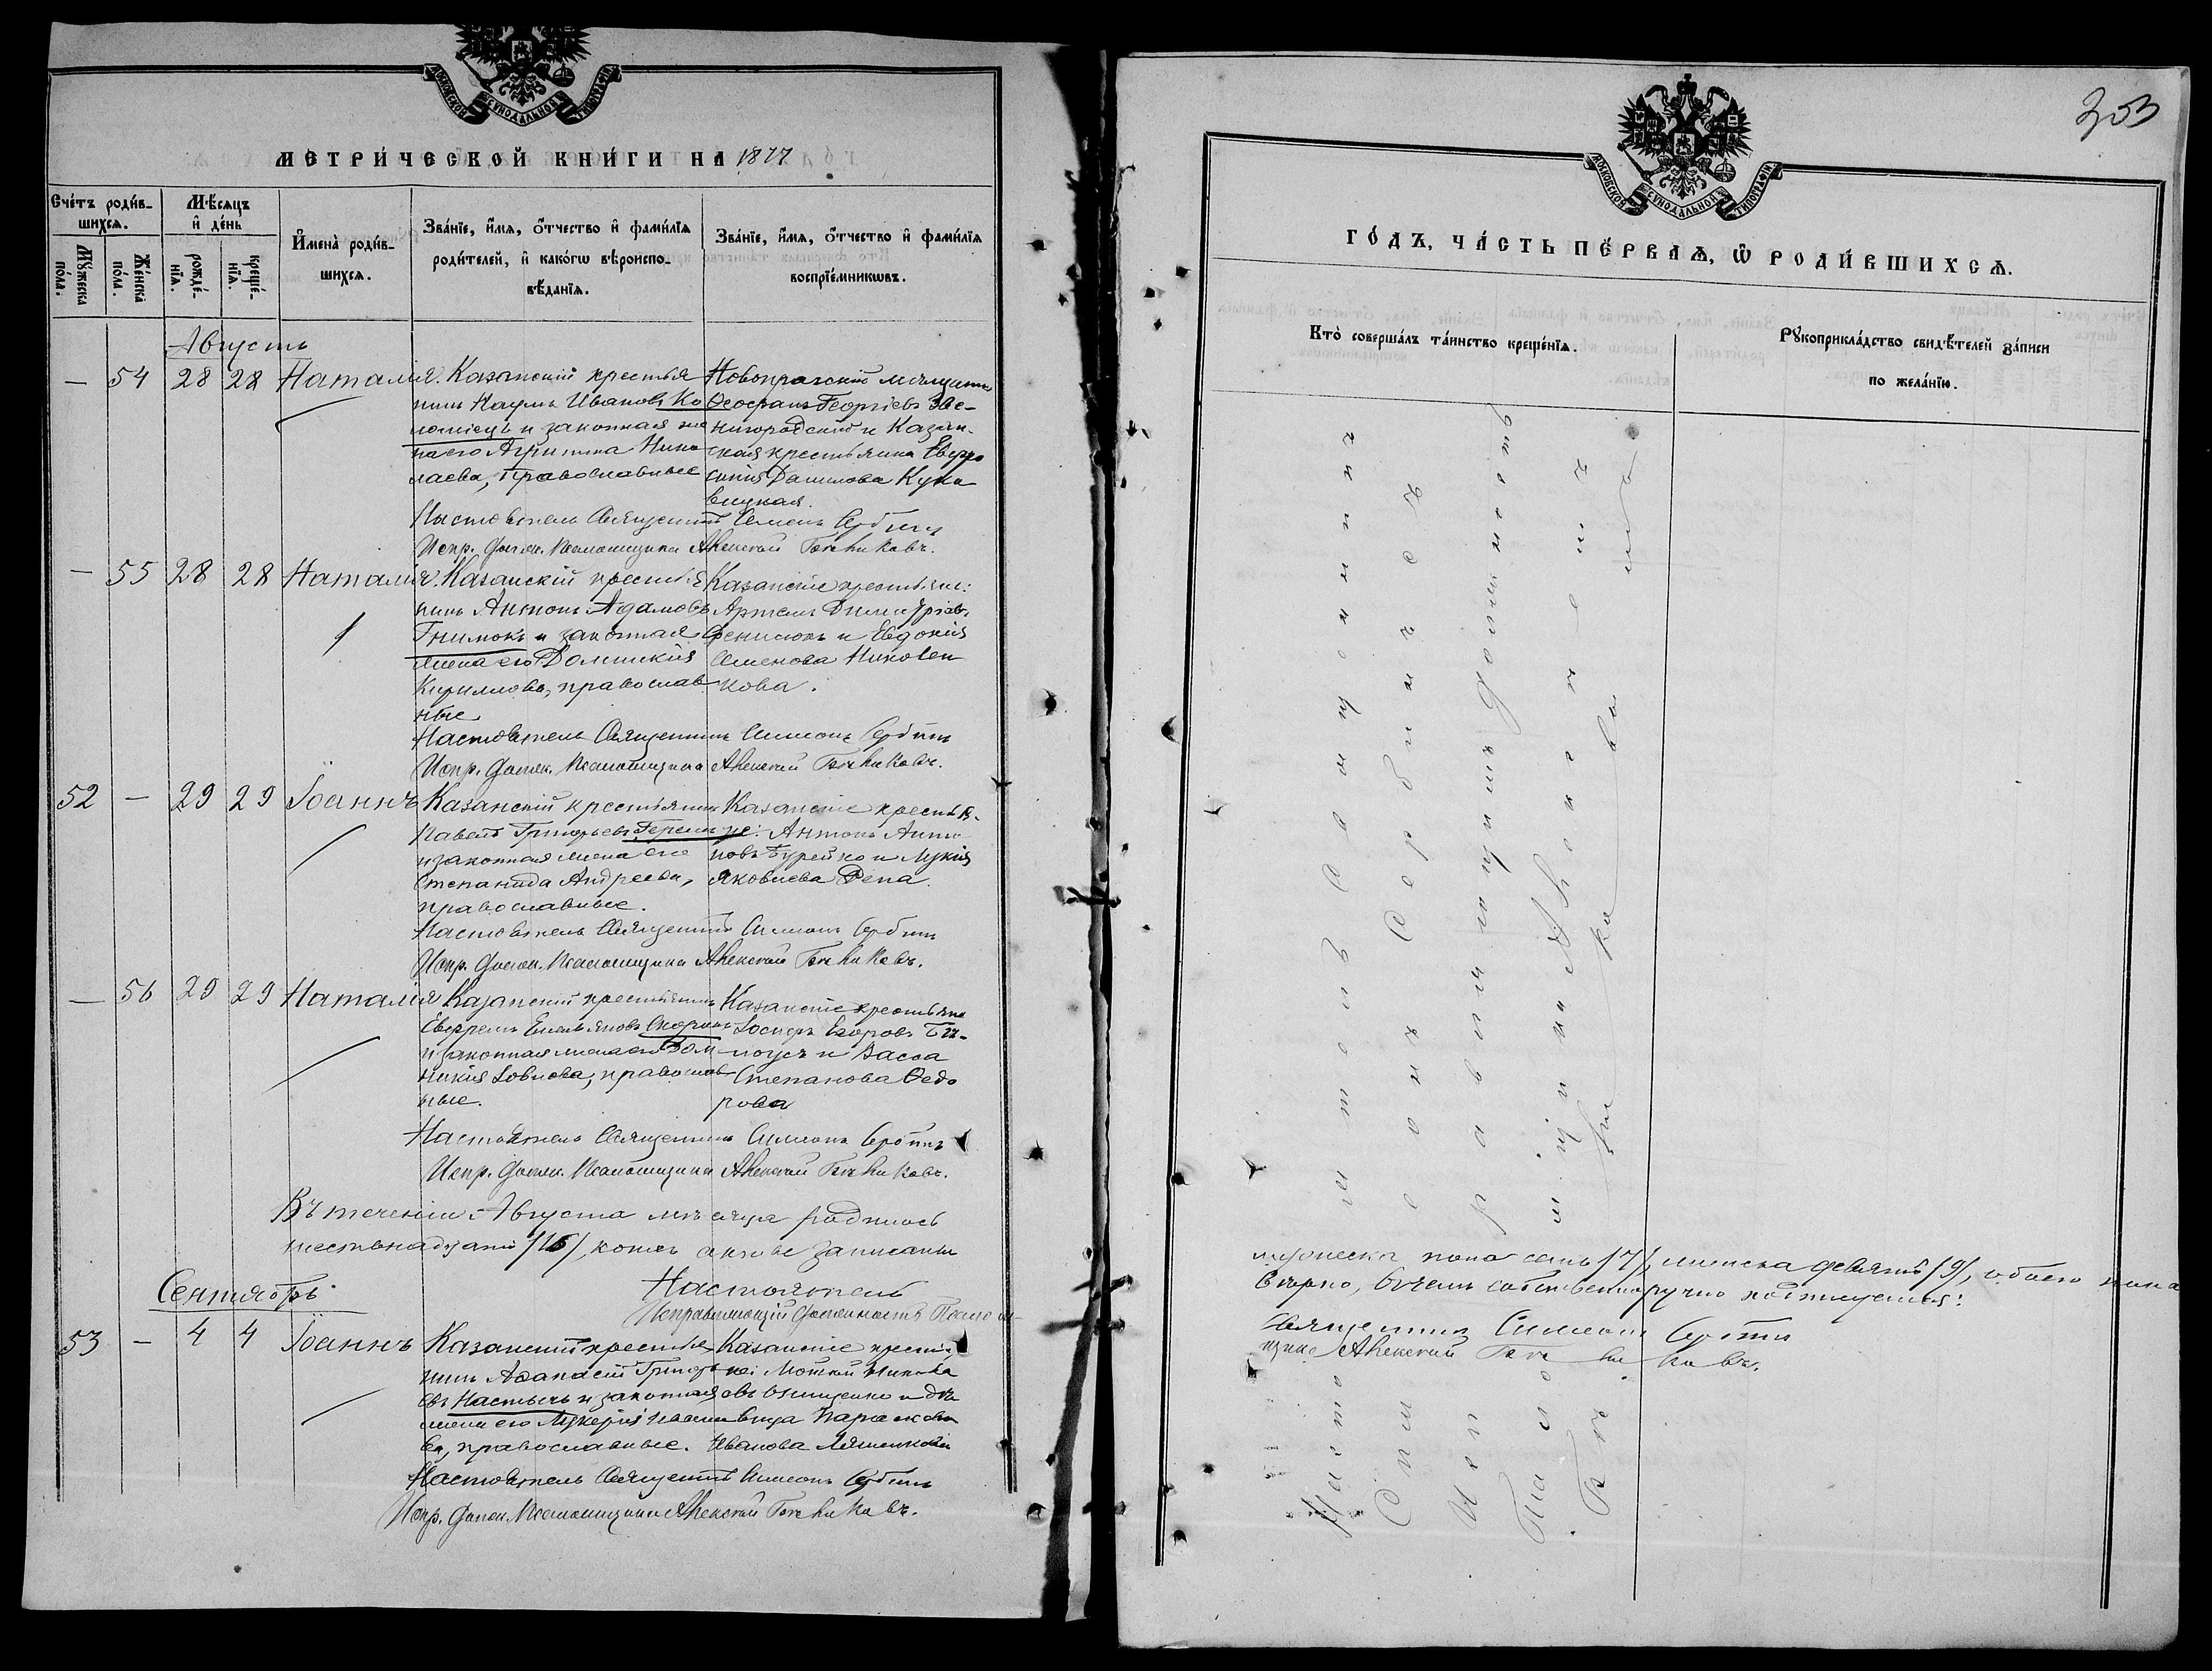 МОСКОВСКОЙ СѴНОДАЛЬНОЙ ТИПОГРАФІИ
МЕТРИ́ЧЕСКОЙ КНИ́ГИ НА 1877
Сче́тъ роди́в-
шихсѧ.
Мѣ́сѧцъ
и҆ де́нь
Мꙋ́жеска
по́ла.
Же́нска
по́ла.
рожде́-
нїѧ.
креще́-
нїѧ.
И҆мена̀ роди́в-
шихсѧ.
Зва́нїе, и҆́мѧ, ѻ҆́тчество и҆ фами́лїѧ
роди́телей, и҆ како́гѡ вѣроиспо-
вѣ́данїѧ.
Зва́нїе, и҆́мѧ, ѻ҆́тчество и҆ фами́лїѧ
воспрїе́мникѡвъ.
Августъ
— 54 28 28 Наталія. Казанскій крестья
нинъ Наумъ Ивановъ Ко
ломіецъ и законная же
на его Агрипина Нико
лаева, православные
Новопражскій мѣщанинъ
Ѳеофанъ Георгіевъ Зве-
нигородскій и Казан-
ская крестьянка Евфро
синія Данилова Куко
вицкая.
Настоятель Священникъ Симеонъ Сербинъ
Испр. долж. Псаломщика Алексѣй Бѣчиковъ.
— 55 28 28 Наталія. Казанскій крестья
нинъ Антонъ Адамовъ
Гнимокъ и законная
жена его Домникія
Кириллова, православ
ные
Казанскіе крестьяне:
Артемъ Димитріевъ
и Евдокія
Семенова
кова.
Настоятель Священникъ Симеонъ Сербинъ
Испр. долж. Псаломщика Алексѣй Бѣчиковъ.
52 — 29 29 Іоаннъ Казанскій крестьянинъ
Павелъ Григорьевъ
и законная жена его
Степанида Андреева,
православные.
Казанскіе крестья-
не: Антонъ Анти
повъ Бурейко и Лукія
Яковлева Репа.
Настоятель Священникъ Симеонъ Сербинъ
Испр. долж. Псаломщика Алексѣй Бѣчиковъ.
— 56 29 29 Наталія Казанскій крестьянинъ
Евфремъ Емельяновъ
и законная жена его Дом
никія Іовлева, православ
ные.
Казанскіе крестьяне
Іосифъ Егоровъ Бѣ-
лоусъ и Васса
Степанова Ѳедо
рова
Настоятель Священникъ Симеонъ Сербинъ
Испр. долж. Псаломщика Алексѣй Бѣчиковъ.
Въ теченіи Августа мѣсяца родилось
шестьнадцать /16/, коихъ актове записаны
Настоятель
Исправляющій должность Псалом-
Сентябрь
53 — 4 4 Іоаннъ Казанскій крестья
нинъ Аѳанасій Григорь
евъ Настычъ и законная
жена его Лукерія Павло
ва, православные.
Казанскіе крестья
не: Мойсей Никола
евъ Онищенко и дѣ
вица Параскева
Иванова Ляшенкова
Настоятель Священникъ Симеонъ Сербинъ
Испр. долж. Псаломщика Алексѣй Бѣчиковъ.
353
МОСКОВСКОЙ СѴНОДАЛЬНОЙ ТИПОГРАФІИ
ГО́ДЪ, ЧА́СТЬ ПЕ́РВАѦ, Ѡ҆ РОДИ́ВШИХСѦ.
Кто̀ соверша́лъ та́инство креще́нїѧ.
Рꙋкоприкла́дство свидѣ́телей за́писи
по жела́нїю.
Настоятель Священникъ
Симеонъ Сербинъ
Исправляющій должность
Псаломщика Алексѣй
Бѣчиковъ
мужеска пола семь /7/, женска девять /9/, обоего пола
Вѣрно, въ чемъ собственноручно подписуемся:
Священникъ Симеонъ Сербинъ
щика Алексѣй Бѣчиковъ.